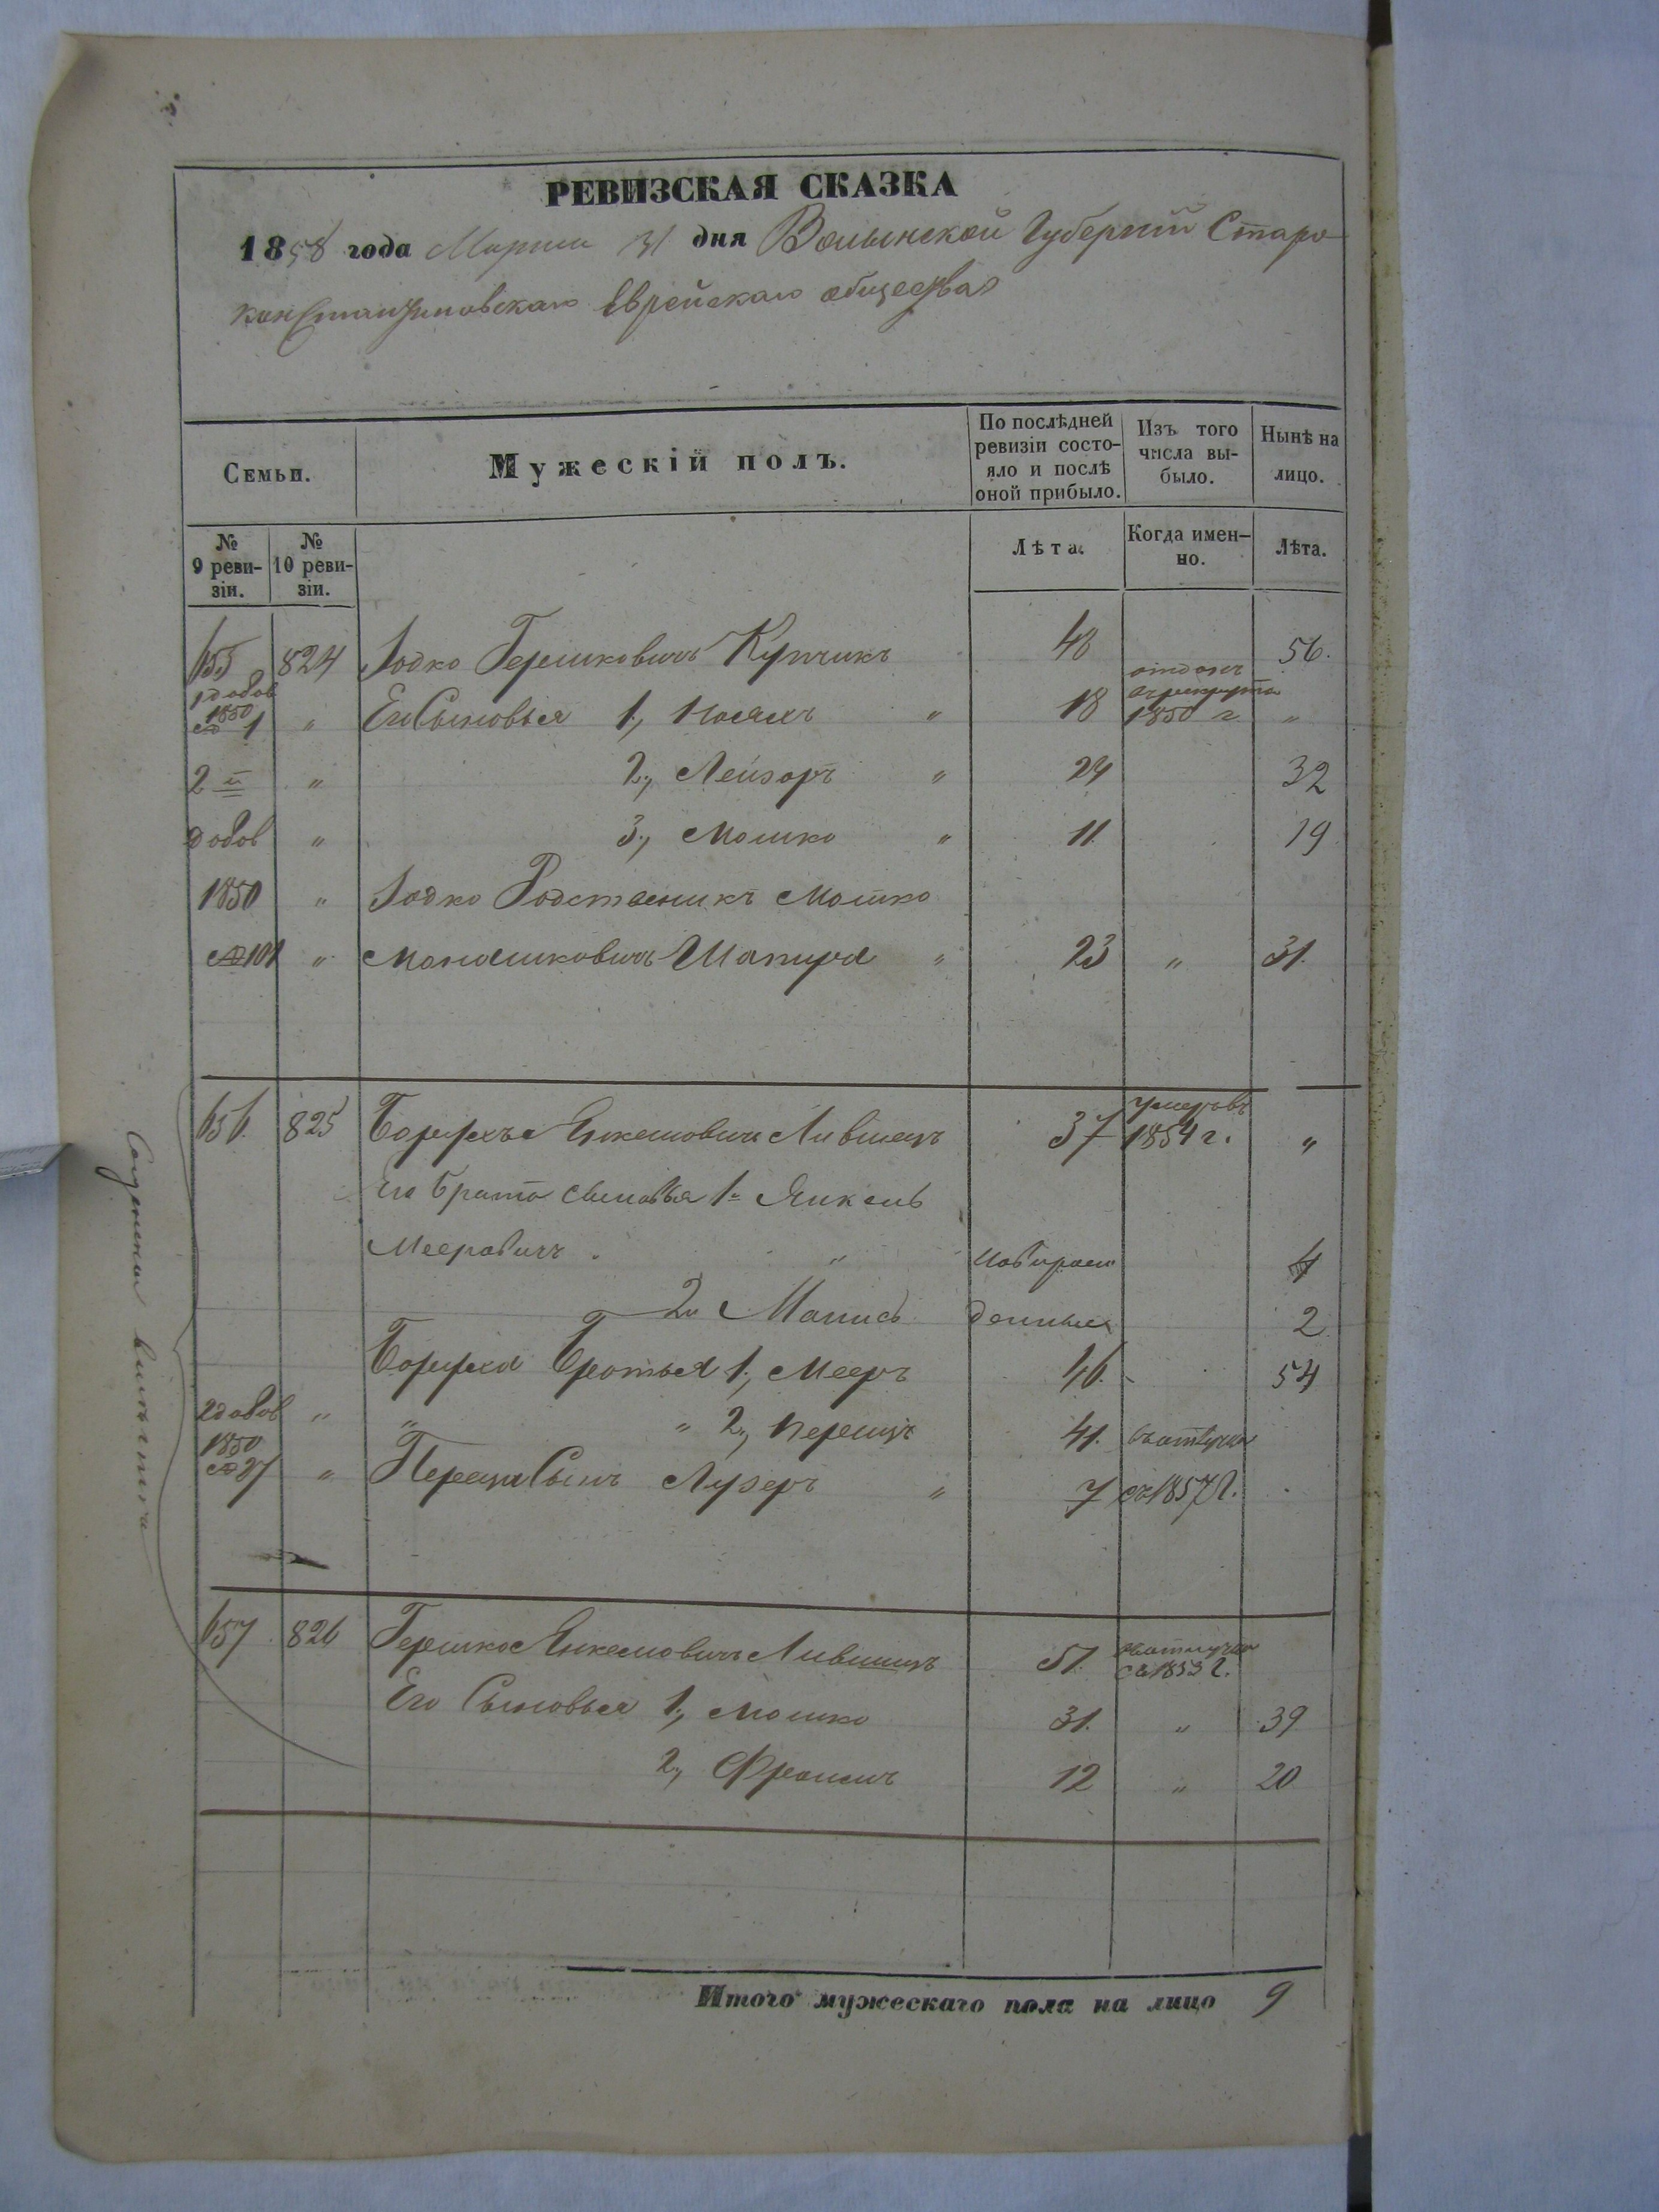 РЕВИЗСКАЯ СКАЗКА
1858 года Марта 31 дня Волынской Губернии Старо
константиновскаго Еврейскаго общества
Семьи.
Мужескій полъ.
По послѣдней ревизіи состо-яло и послѣ оной прибыло.
Изъ того числа вы-было.
Нынѣ на лицо.
№ 9 реви-зіи.
№ 10 реви-зіи.
Лѣта.
Когда имен-но.
Лѣта.
655 824 Іодко Гершковичъ Купчикъ 48 56.
1 добов 1850 1 " Его Сыновья 1, " 18 отданъ въ рекруты 1850 г. "
2 й " 2, Лейзоръ " 24 32
добов " 3, Мошко " 11. 19
1850 " Іодко Родственикъ Мошко
№ 101 " Монашковичъ Шапира " 23 " 31.
656. 825 Борухъ Янкелевичъ Лившецъ 37 умеръ въ 1854 г. "
Его брата сыновья 1й Янкель
Мееровичъ. " 4
2й 2
Боруха Братья 1, Мееръ 46. 54
2 добов " " " 2, Перецъ 41. въ отлучке
1850 № 27 " Переца Сынъ Лузеръ " 7 съ 1857 г.
657 826 Гершко Янкелевичъ Лившицъ 51. въ отлучке съ 1853 г.
Его Сыновья 1, Мошко 31. " 39
2, Фроимъ 12 " 20
Итого мужескаго пола на лицо 9